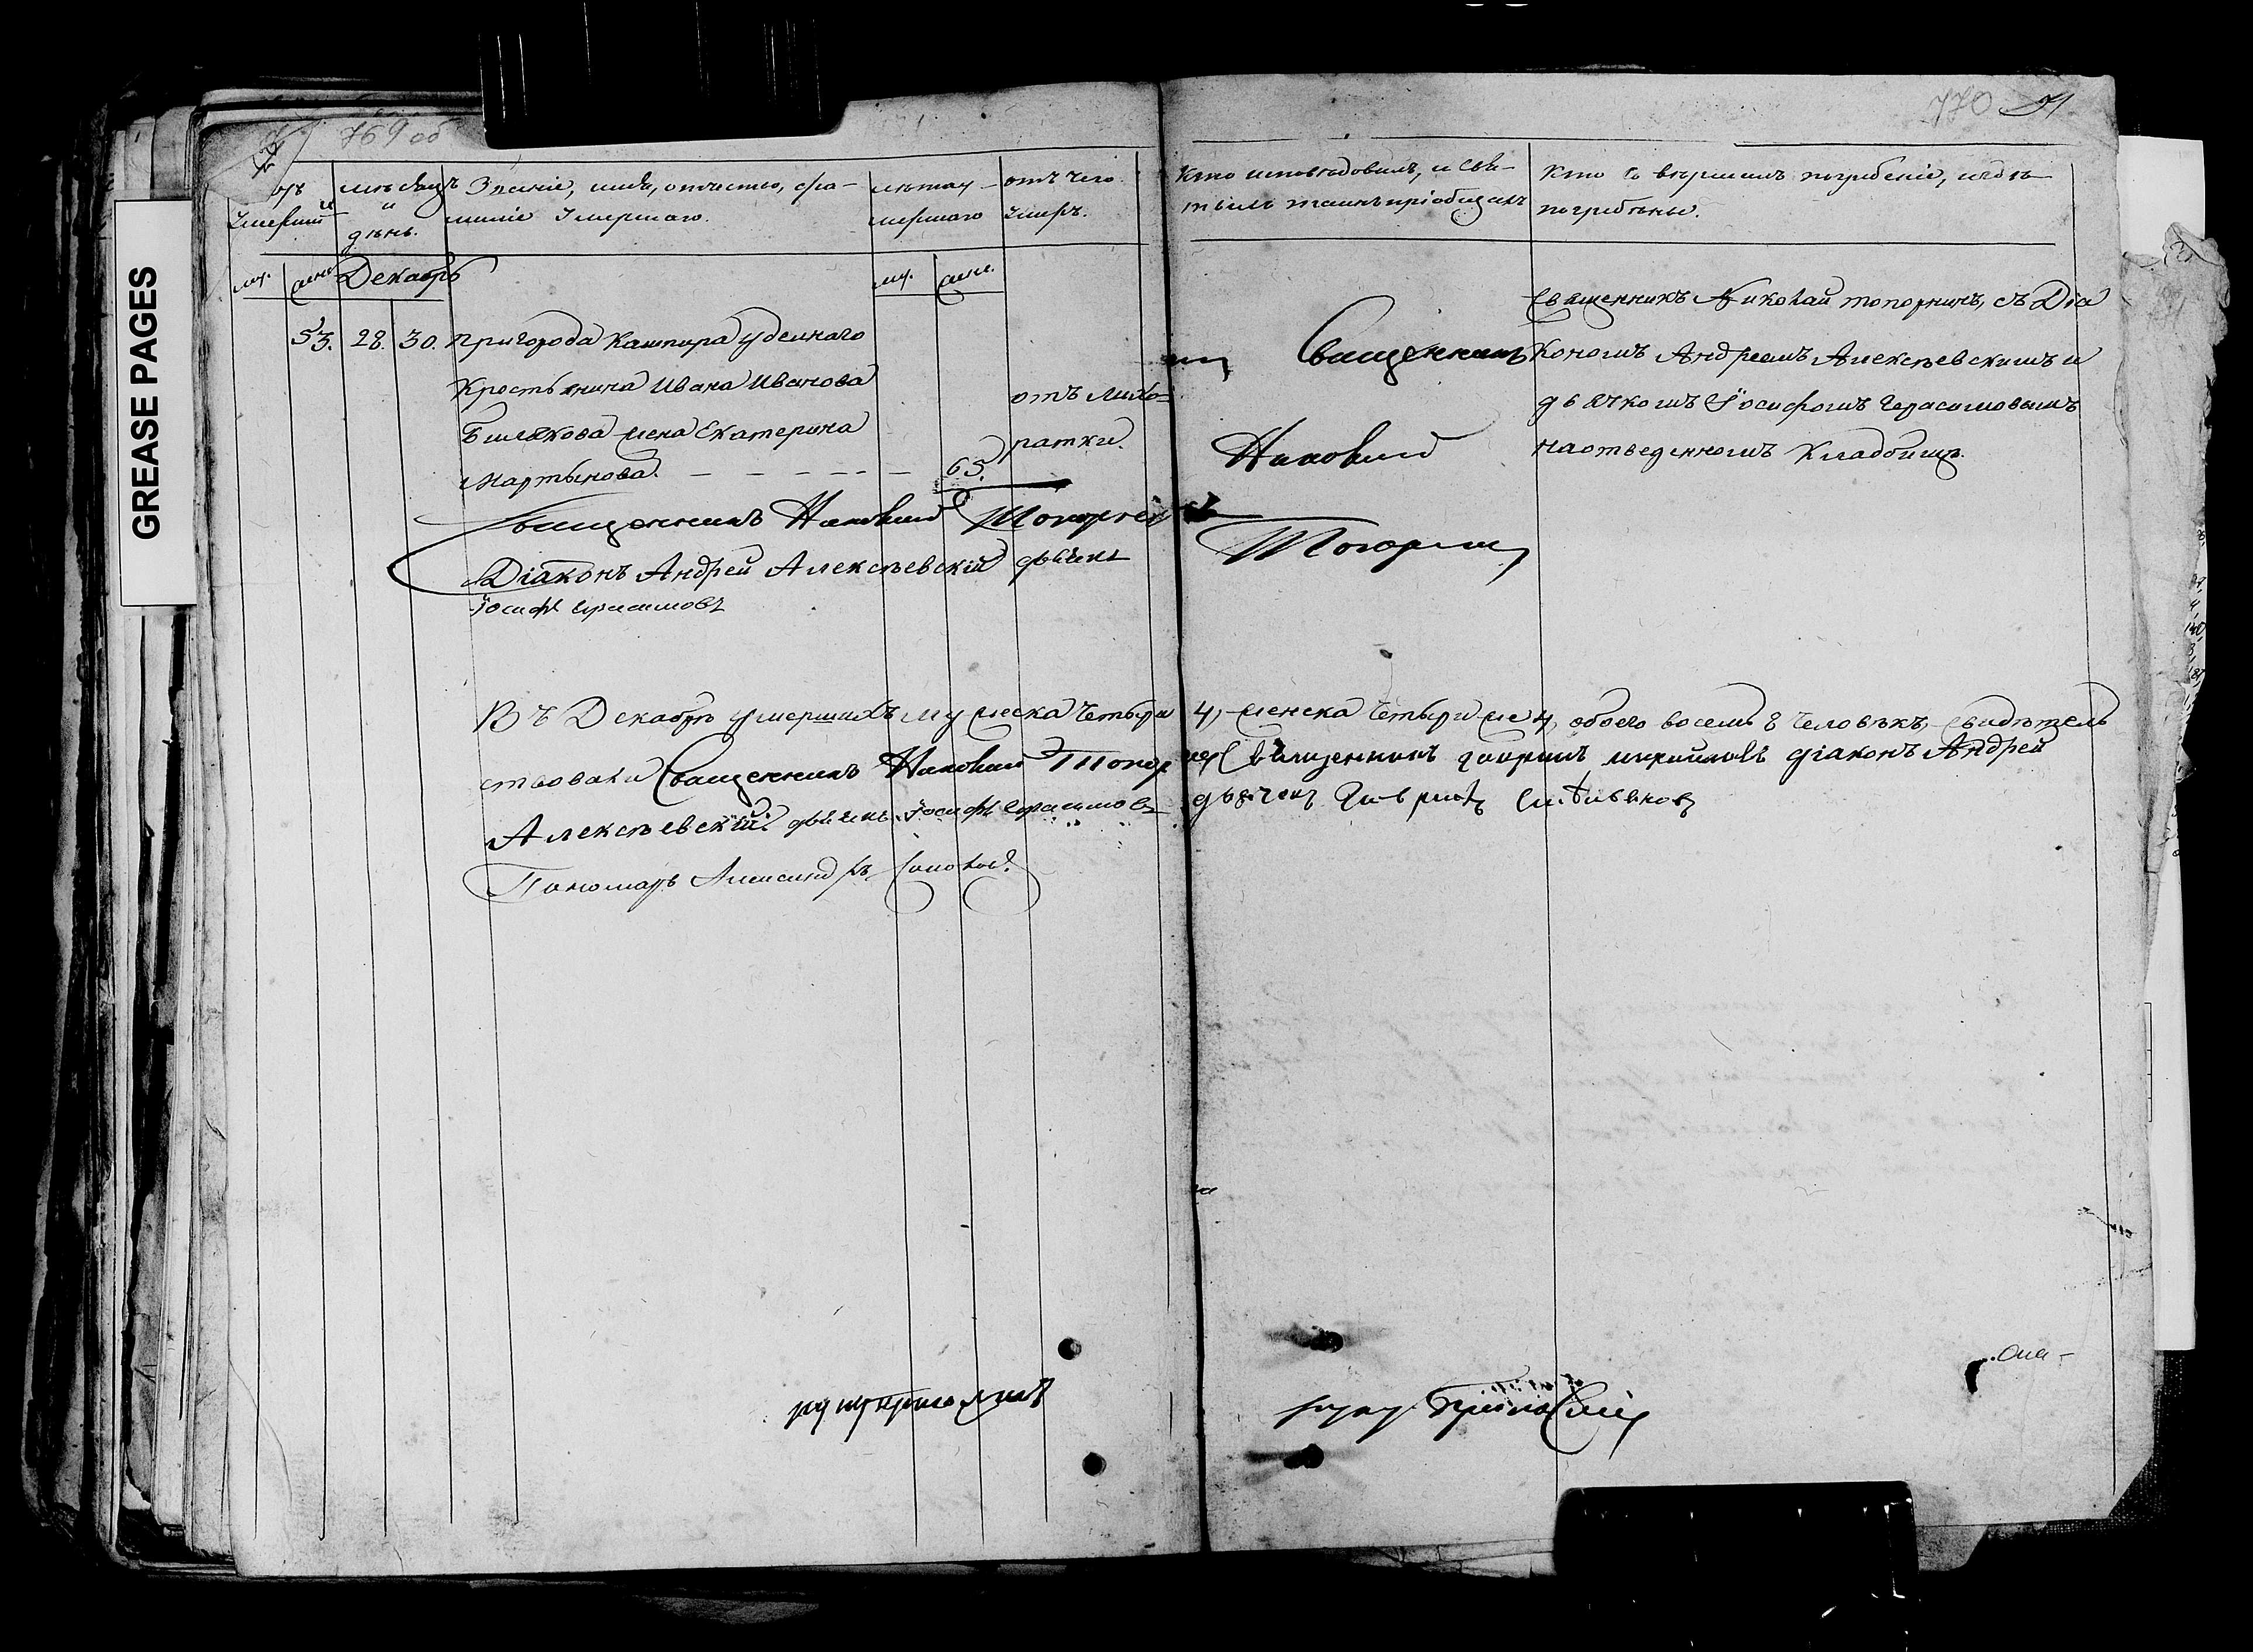 GREASE PAGES
769 об
770 71
мѣсяцъ и день.
Званіе, имя, отчество, фа-
миліе умершаго.
лѣта у-
мершаго
отъ чего
умеръ.
Кто исповѣдовалъ, и свя-
тыхъ таинъ пріобщалъ
Кто совершалъ погребеніе, и гдѣ
погребены.
му. жен. Декабрь
му. жен.
53. 28. 30. пригорода Кашпира удельнаго
Крестьянина Ивана Иванова
жена Екатерина
Мартынова. 65.
отъ лихо=
ратки.
Священникъ
Николай
Топорнин
Священникъ Николай топорнинъ, съ Діа
кономъ Андреемъ Алексѣевскимъ и
дьячкомъ Іосифомъ Герасимовымъ
на отведенномъ Кладбищѣ.
Священникъ Николай Топорнинъ
Діаконъ Андрей Алексѣевскій дьячекъ
Іосифъ Герасимовъ
Въ Декабрѣ умершихъ мужеска четыри 4, женска четыри 4, обоего восемь 8 человѣкъ, свидѣтель
ствовали Священникъ Николай Топорнин Священникъ діаконъ Андрей
Алексѣевскій дьячекъ Іосифъ Герасимовъ дьячекъ
Пономарь Александръ
руку приложилъ
руку приложилъ